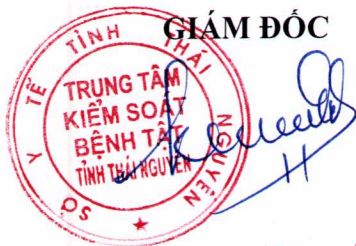 GIÁM ĐỐC
SỞ Y TẾ TỈNH THÁI NGUYÊN
TRUNG TÂM
KIỂM SOÁT
BỆNH TẬT
TỈNH THÁI NGUYÊN